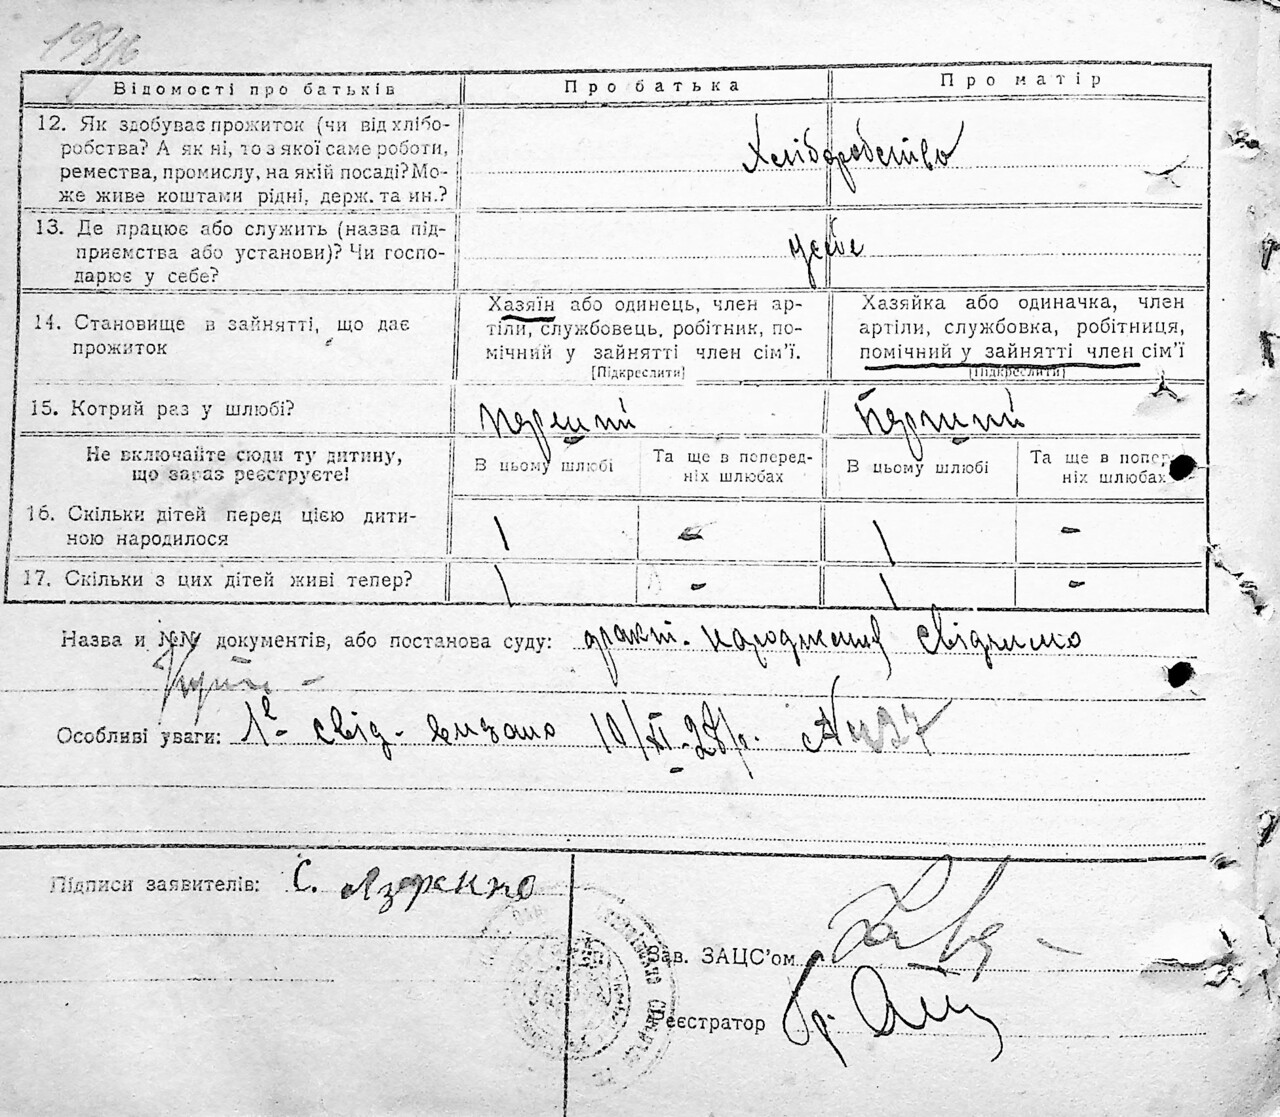 Відомості про батьків
Про батька
Про матір
12. Як здобуває прожиток (чи від хлібо-
робства? А як ні, то з якої саме роботи,
ремества, промислу, на якій посаді? Мо-
же живе коштами рідні, держ. та ин.?
Хліборобство
13. Де працює або служить (назва під-
приємства або установи)? Чи госпо-
дарює у себе?
у себе
14. Становище в зайнятті, що дає
прожиток
Хазяїн або одинець, член ар-
тіли, службовець, робітник, по-
мічний у зайнятті член сім’ї.
[Підкреслити]
Хазяйка або одиначка, член
артіли, службовка, робітниця,
помічний у зайнятті член сім’ї
[Підкреслити]
15. Котрий раз у шлюбі?
перший
Перший
Не включайте сюди ту дитину,
що зараз реєструєте!
В цьому шлюбі
Та ще в поперед-
ніх шлюбах
В цьому шлюбі
Та ще в попер
ніх шлюбах
16. Скільки дітей перед цією дити-
ною народилося
1
-
1
-
17. Скільки з цих дітей живі тепер?
1
-
1
-
Назва й №№ документів, або постанова суду: факт. народження свідчимо
Особливі уваги: свід. видано 10/XI-28р.
Підписи заявителів: С.
Зав. ЗАЦС’ом
Реєстратор